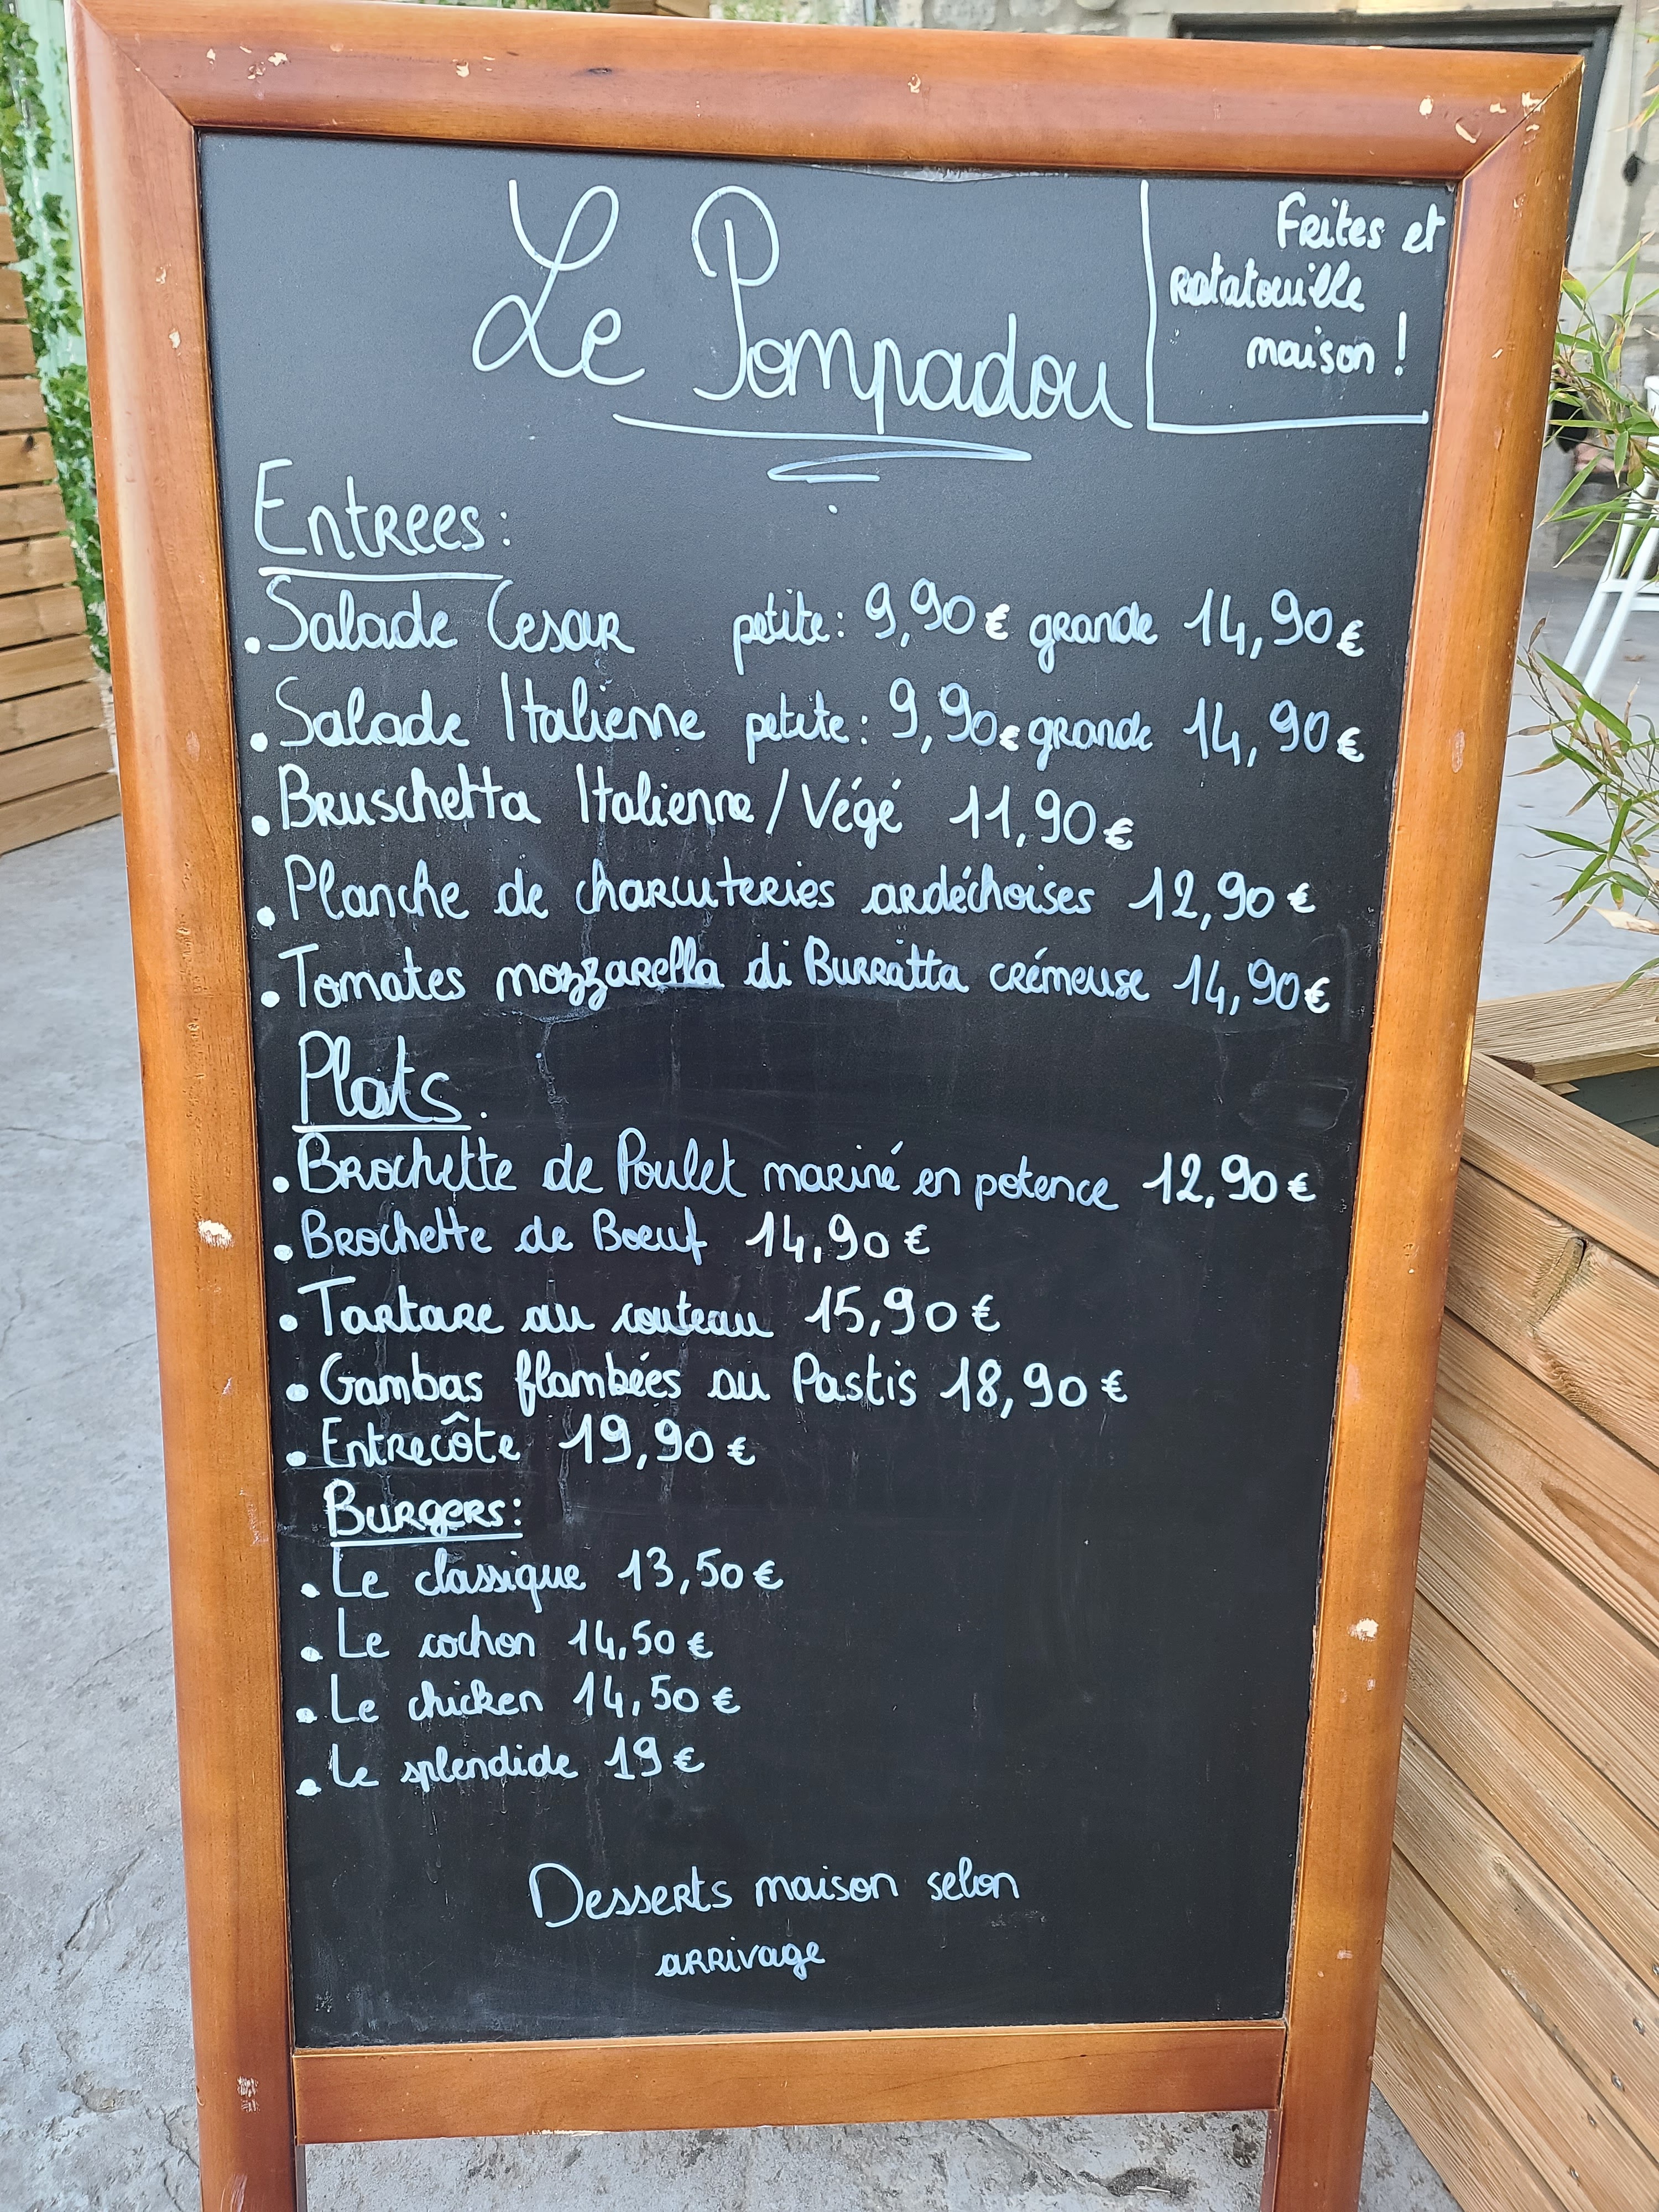 Le Pompadou
Frites et
ratatouille
maison !
Entrees :
. Salade Cesar petite : 9,90 € grande 14,90 €
. Salade Italienne petite : 9,90 € grande 14,90 €
. Bruschetta Italienne / Végé 11,90 €
. Planche de charcuteries ardéchoises 12,90 €
. Tomates mozzarella di Burratta crémeuse 14,90 €
Plats.
. Brochette de Poulet mariné en potence 12,90 €
. Brochette de Boeuf 14,90 €
. Tartare au couteau 15,90 €
. Gambas flambées au Pastis 18,90 €
. Entrecôte 19,90 €
Burgers :
. Le classique 13,50 €
. Le cochon 14,50 €
. Le chicken 14,50 €
. Le splendide 19 €
Desserts maison selon
arrivage